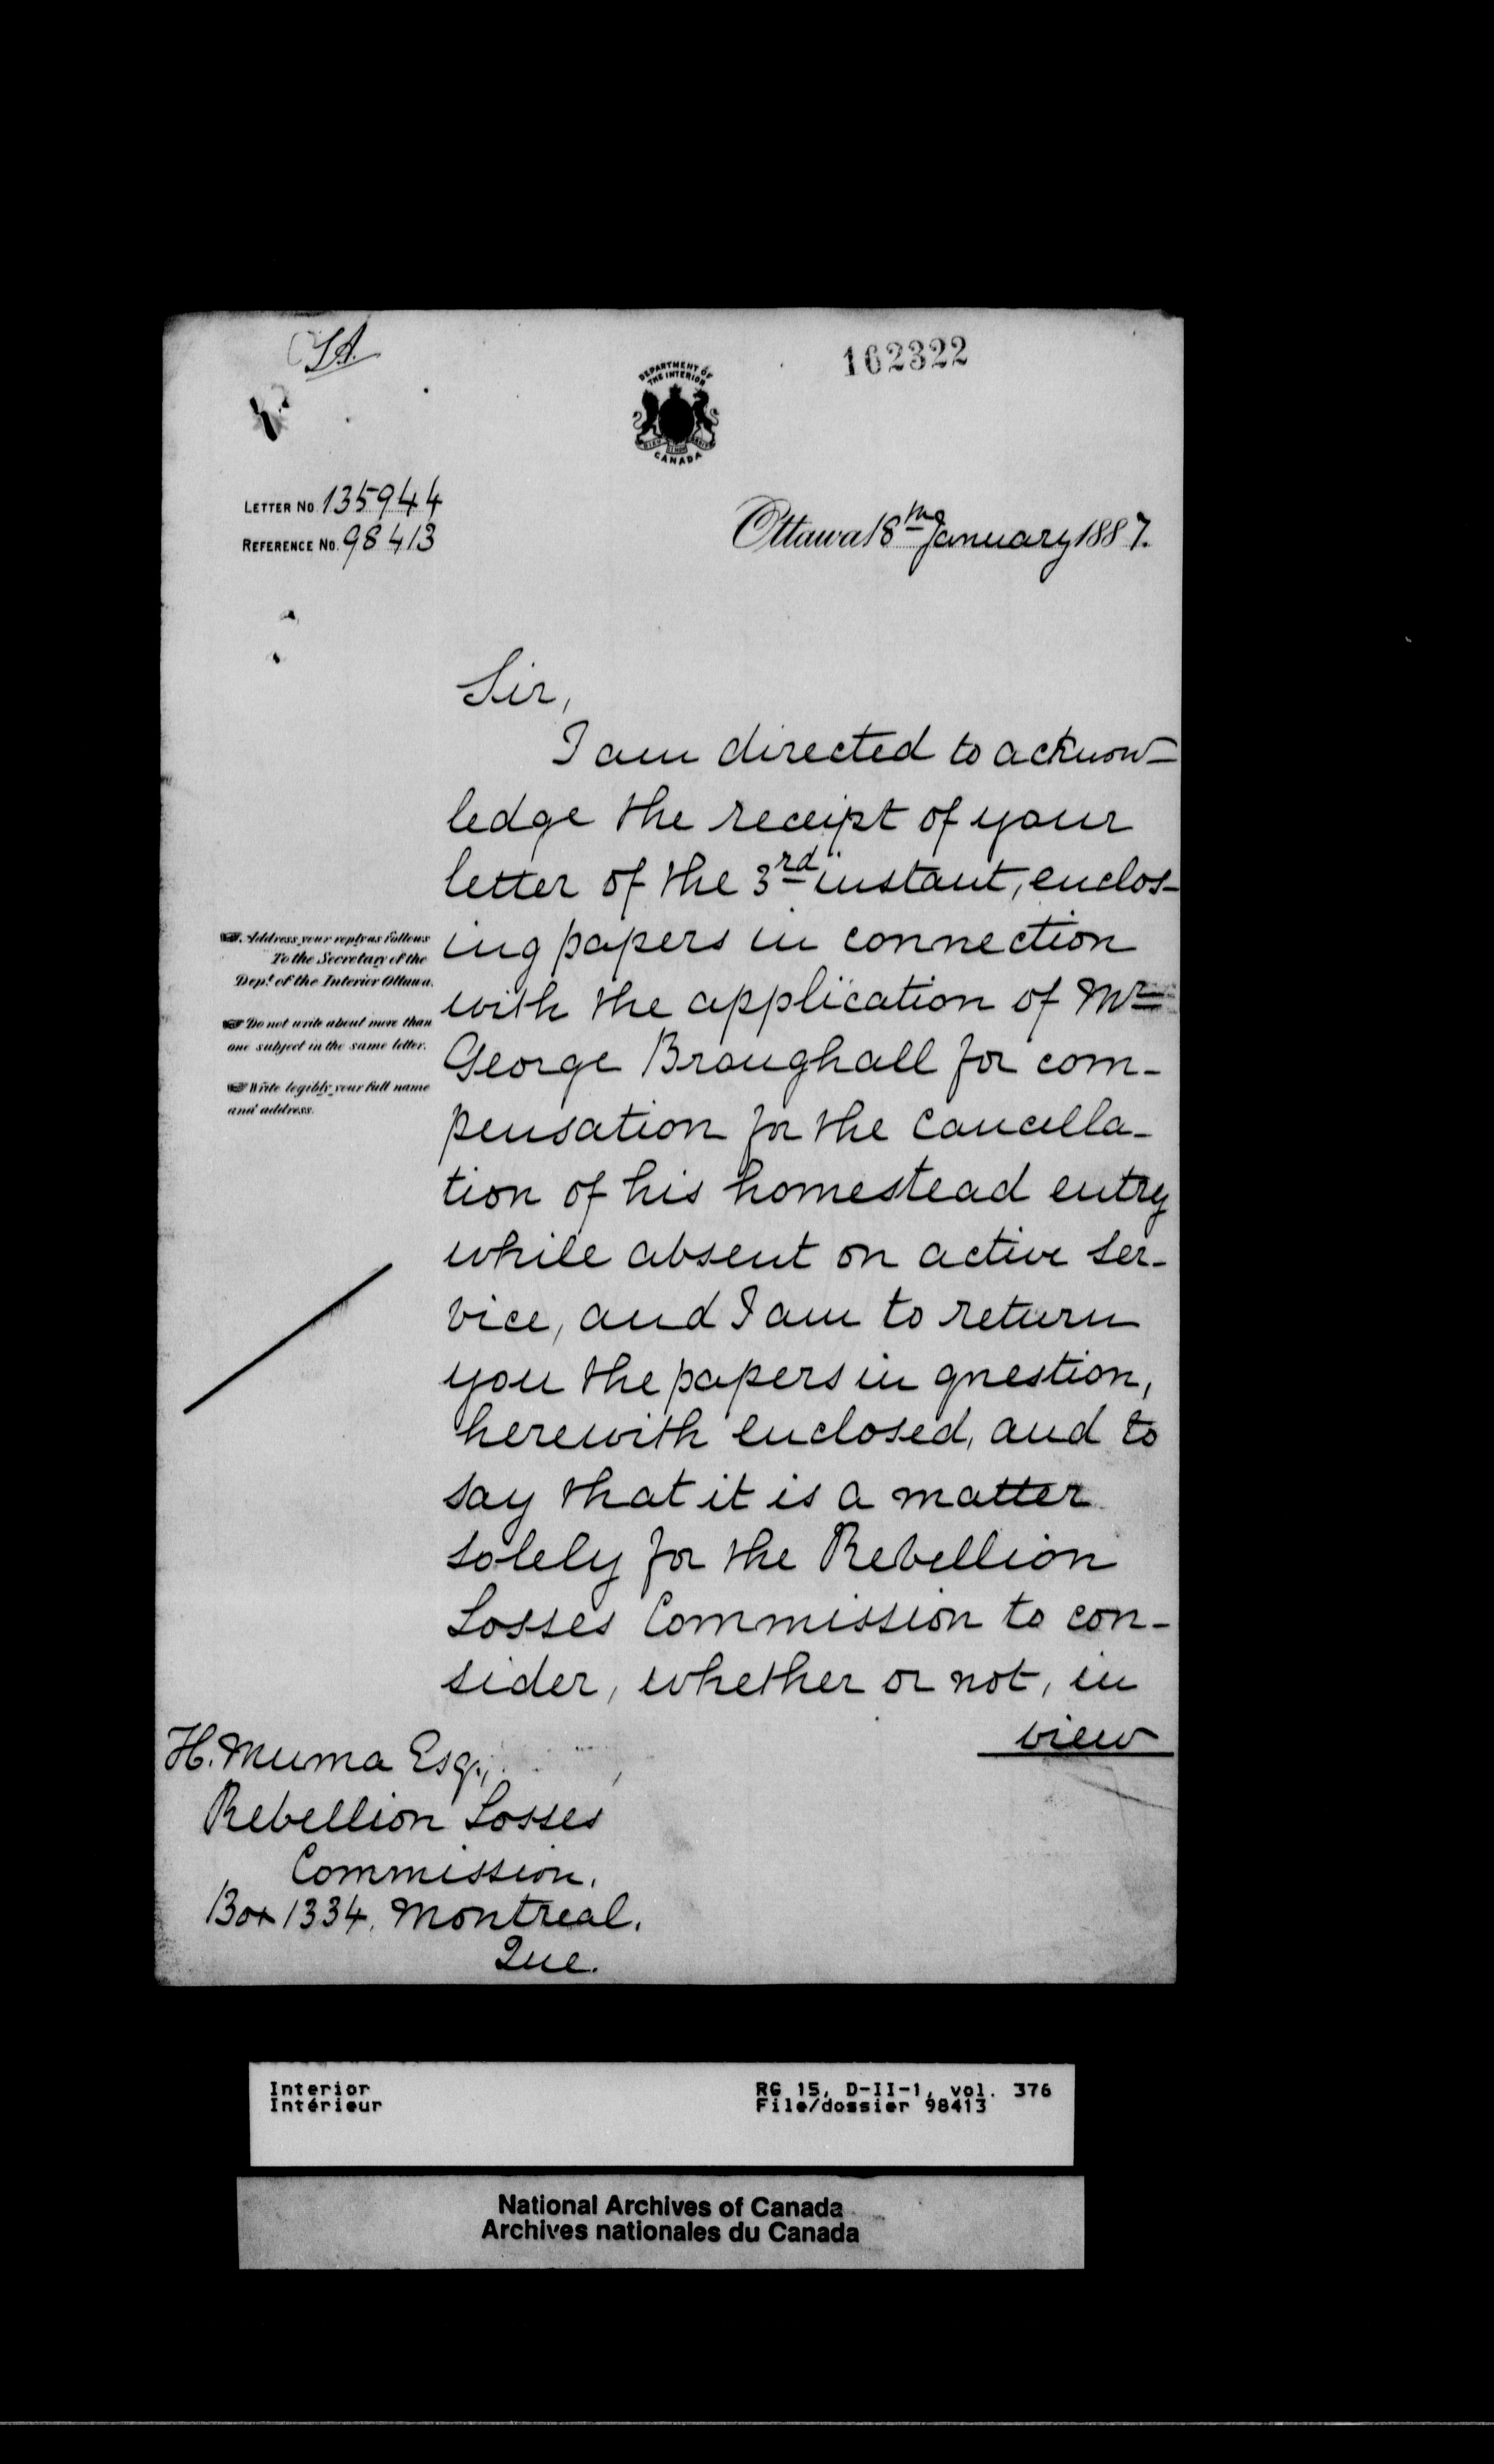 SA.
162322
DEPARTMENT OF
THE INTERIOR
CANADA
LETTER NO. 135944
REFERENCE NO. 98413
Ottawa 18th January 1887.
Sir,
I am directed to acknow-
ledge the receipt of your
letter of the 3rd instant, enclos-
ing papers in connection
with the application of Mr
George Broughall for com-
pensation for the cancella-
tion of his homestead entry
while absent on active ser-
vice, and I am to return
you the papers in question,
herewith enclosed, and to
say that it is a matter
solely for the Rebellion
Losses Commission to con-
sider, whether or not, in
view
Address your reply as follows
To the Secretary of the
Dept. of the Interior Ottawa.
Do not write about more than
one subject in the same letter.
Write legibly your full name
and address.
H. Muma Esq.,
Rebellion Losses
Commission.
Box 1334, Montreal.
Que.
Interior
Intérieur
RG 15, D-II-1, vol. 376
File/dossier 98413
National Archives of Canada
Archives nationales du Canada